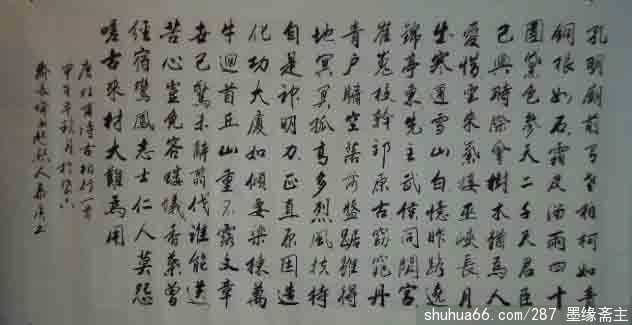 孔明廟前有老柏柯如青
銅根如石霜皮溜雨四十
圍黛色參天二千尺君臣
已與時際會樹木猶為人
愛惜雲來氣接巫峽長月
出寒通雪山白憶昨路遶
錦亭東先主武侯同閟宮
崔嵬枝幹郊原古窈窕丹
青戶牖空落落盤踞雖得
地冥冥孤高多烈風扶持
自是神明力正直原因造
化功大廈如傾要梁棟萬
牛迴首丘山重不露文章
世已驚未辭翦伐誰能送
苦心豈免容螻蟻香葉曾
經宿鸞鳳志士仁人莫怨
嗟古來材大難為用
唐杜甫詩古柏行一首
甲午年秋月於
shuhua66.com/287 墨缘斋主